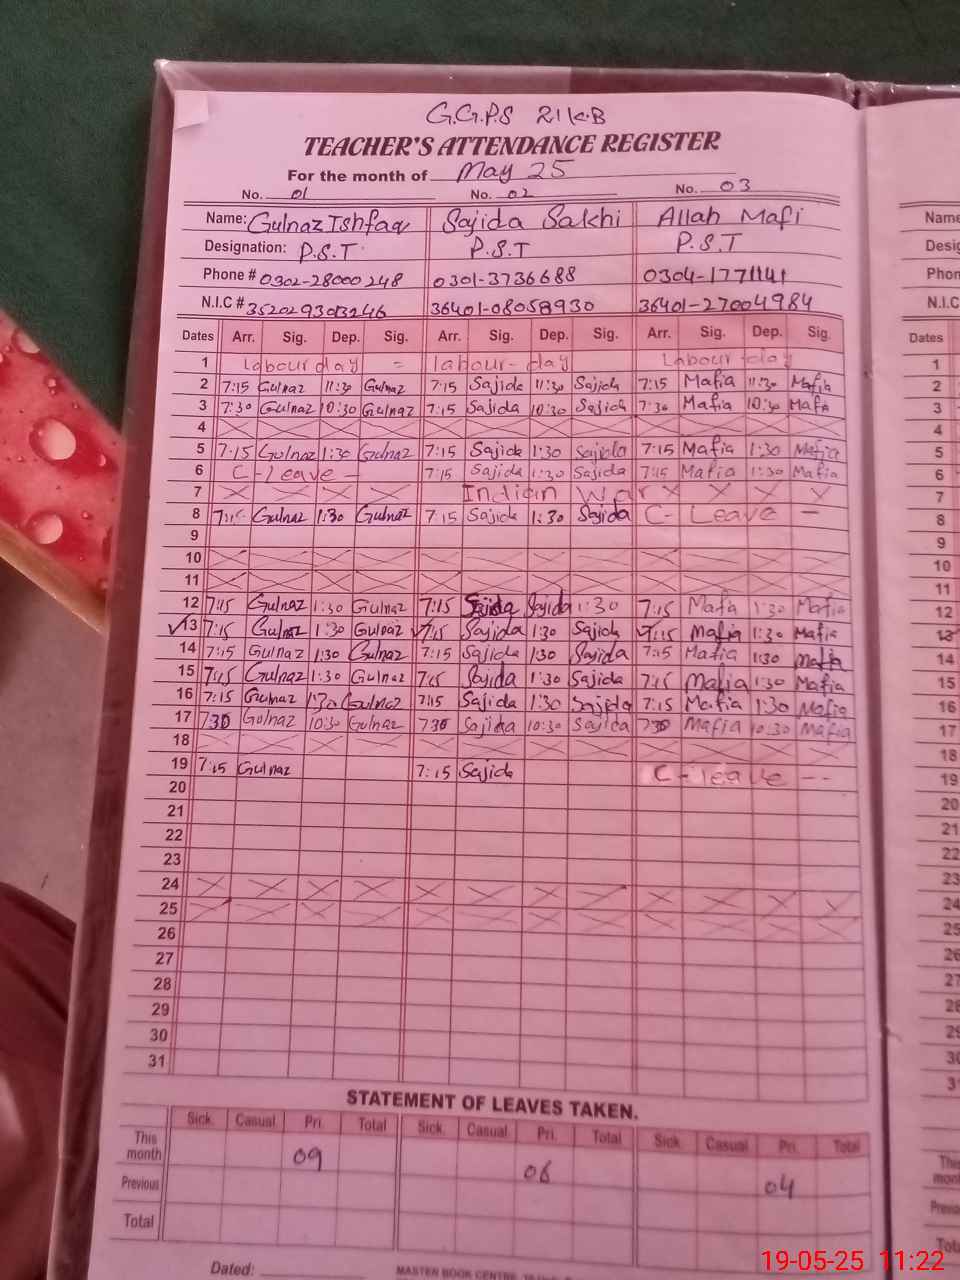 G.G.P.S 21 K.B
TEACHER'S ATTENDANCE REGISTER
For the month of May 25
No. 01 No. 02 No. 03
Name: Gulnaz Ishfaq Sajida Sakhi Allah Mafi Name
Designation: P.S.T P.S.T P.S.T Desig
Phone # 0302-28000248 0301-3736688 0304-1771141 Phon
N.I.C # 3520293013246 36401-08058930 36401-27004984 N.I.C
Dates Arr. Sig. Dep. Sig. Arr. Sig. Dep. Sig. Arr. Sig. Dep. Sig. Dates
1 Labour day = labour-day Labour day 1
2 7:15 Gulnaz 11:30 Gulnaz 7:15 Sajida 11:30 Sajida 7:15 Mafia 11:30 Mafia 2
3 7:30 Gulnaz 10:30 Gulnaz 7:15 Sajida 10:30 Sajida 7:30 Mafia 10:30 Mafia 3
4 4
5 7:15 Gulnaz 1:30 Gulnaz 7:15 Sajida 1:30 Sajida 7:15 Mafia 1:30 Mafia 5
6 C-Leave - 7:15 Sajida 1:30 Sajida 7:15 Mafia 1:30 Mafia 6
7 X X X X Indian War X X X X 7
8 7:15 Gulnaz 1:30 Gulnaz 7:15 Sajida 1:30 Sajida C-Leave - 8
9 9
10 10
11 11
12 7:15 Gulnaz 1:30 Gulnaz 7:15 Sajida Sajida 1:30 7:15 Mafia 1:30 Mafia 12
13 7:15 Gulnaz 1:30 Gulnaz 7:15 Sajida 1:30 Sajida 7:15 Mafia 1:30 Mafia 13
14 7:15 Gulnaz 1:30 Gulnaz 7:15 Sajida 1:30 Sajida 7:15 Mafia 1:30 Mafia 14
15 7:15 Gulnaz 1:30 Gulnaz 7:15 Sajida 1:30 Sajida 7:15 Mafia 1:30 Mafia 15
16 7:15 Gulnaz 1:30 Gulnaz 7:15 Sajida 1:30 Sajida 7:15 Mafia 1:30 Mafia 16
17 730 Gulnaz 10:30 Gulnaz 730 Sajida 10:30 Sajida 730 Mafia 10:30 Mafia 17
18 18
19 7:15 Gulnaz 7:15 Sajida C-leave -- 19
20 20
21 21
22 22
23 23
24 24
25 25
26 26
27 27
28 28
29 29
30 30
31 3
STATEMENT OF LEAVES TAKEN.
Sick. Casual Pri. Total Sick. Casual Pri. Total Sick. Casual Pri. Total
This month 09 06 04
Previous
Total
Dated:
MASTER BOOK CENTRE
19-05-25 11:22